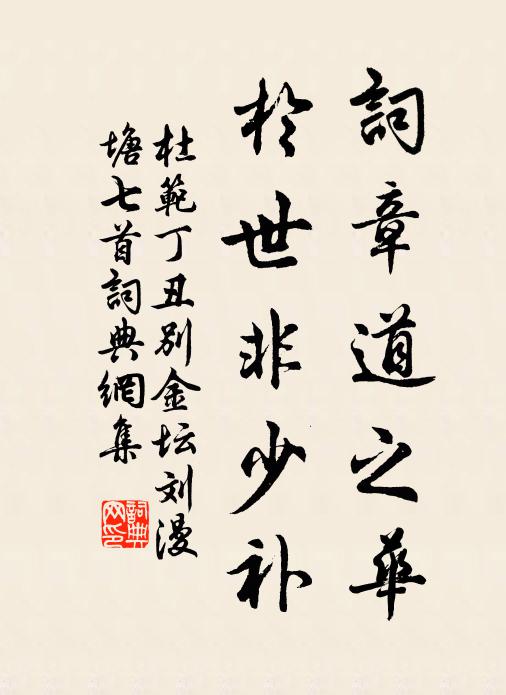 詞章道之華
於世非少补
杜範丁丑别金坛刘漫
塘七首詞典網集
詞典
网印